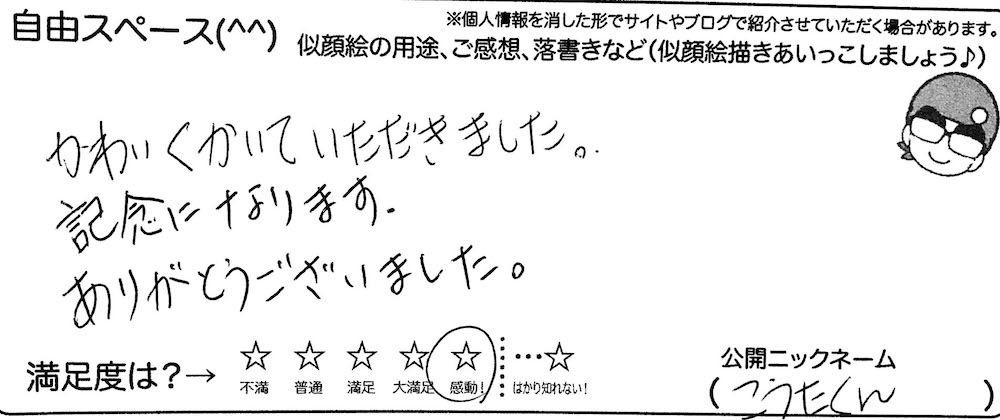 自由スペース(^^)
※個人情報を消した形でサイトやブログで紹介させていただく場合があります。
似顔絵の用途、ご感想、落書きなど(似顔絵描きあいっこしましょう♪)
かわいくかいていただきました。
記念になります.
ありがとうございました。
満足度は?→ ☆ ☆ ☆ ☆ ☆ …☆
不満 普通 満足 大満足 感動! はかり知れない!
公開ニックネーム
(こうたくん)